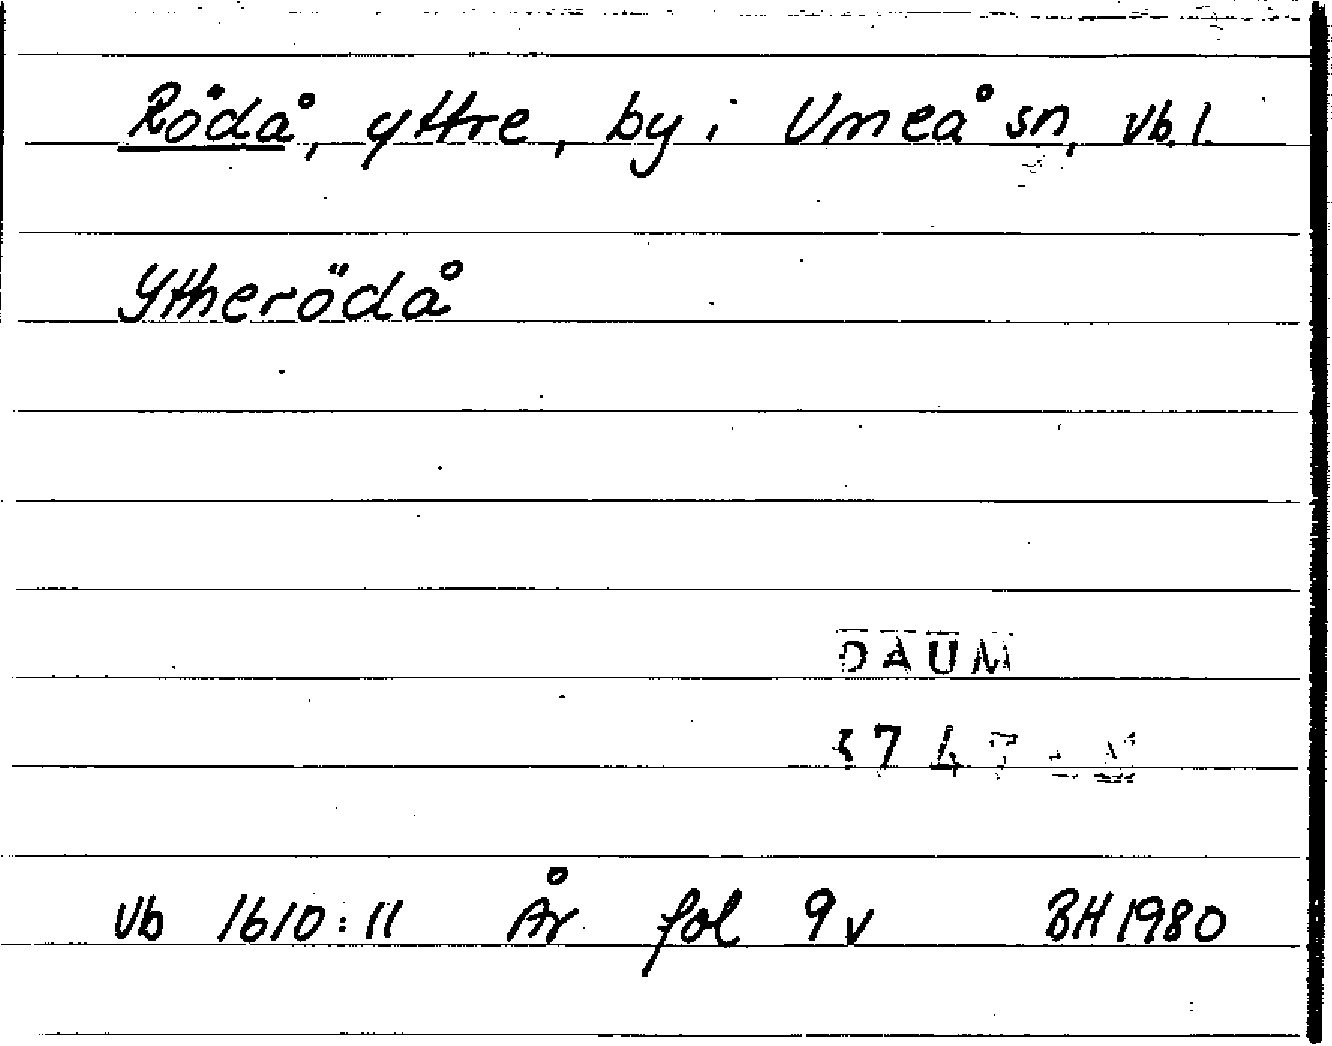 Rödå, yttre, by i Umeå sn, Vb. l.
Ytherödå
DAUM
Vb 1610:11 År fol 9v BH 1980